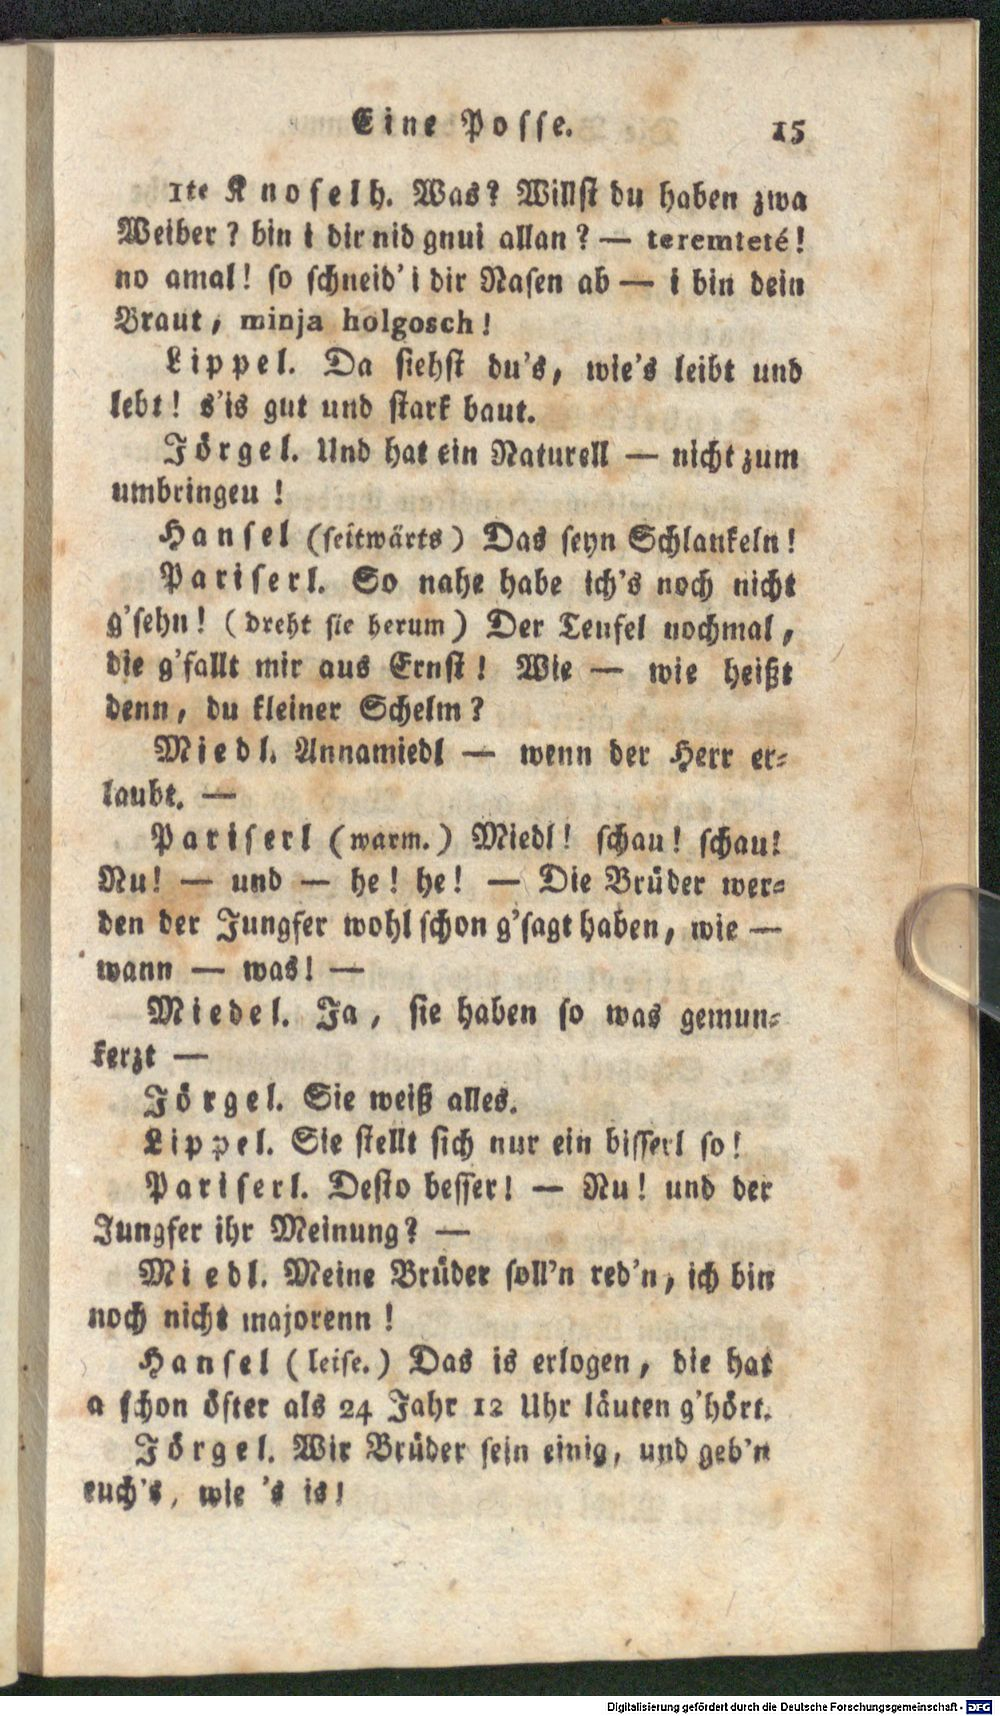 Eine Posse. 15
1te Knofelh. Was? Willst du haben zwa
Weiber? bin i dir nid gnui allan? — teremteté!
no amal! so schneid' i dir Nasen ab — i bin dein
Braut, minja holgosch!
Lippel. Da siehst du's, wie's leibt und
lebt! s'is gut und stark baut.
Jörgel. Und hat ein Naturell — nicht zum
umbringeu!
Hansel (seitwärts) Das seyn Schlankeln!
Pariserl. So nahe habe ich's noch nicht
g'sehn! (dreht sie herum) Der Teufel nochmal,
die g'fallt mir aus Ernst! Wie — wie heißt
denn, du kleiner Schelm?
Miedl. Annamiedl — wenn der Herr er-
laubt. —
Pariserl (warm.) Miedl! schau! schau!
Nu! — und — he! he! — Die Brüder wer-
den der Jungfer wohl schon g'sagt haben, wie —
wann — was! —
Miedel. Ja, sie haben so was gemun-
kerzt —
Jörgel. Sie weiß alles.
Lippel. Sie stellt sich nur ein bisserl so!
Pariserl. Desto besser! — Nu! und der
Jungfer ihr Meinung? —
Miedl. Meine Brüder soll'n red'n, ich bin
noch nicht majorenn!
Hansel (leise.) Das is erlogen, die hat
a schon öfter als 24 Jahr 12 Uhr läuten g'hört.
Jörgel. Wir Brüder sein einig, und geb'n
euch's, wie 's is!
Digitalisierung gefördert durch die Deutsche Forschungsgemeinschaft - DFG